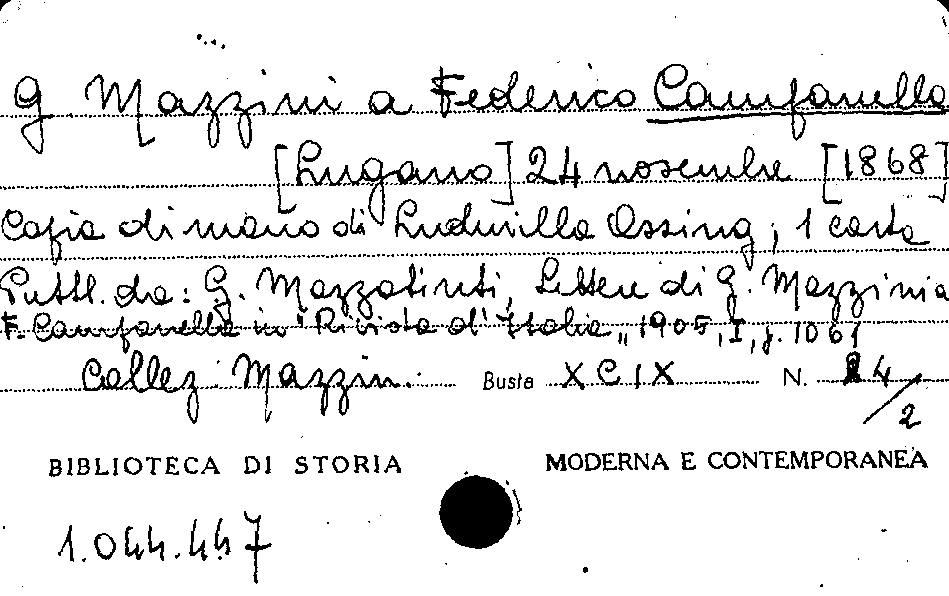 G Mazzini a Federico Campanella
[Lugano] 24 novembre [1868]
Copia di mano di Ludmilla Assing; 1 carta
Pubbl. da: G. Mazzatinti, Lettere di G. Mazzini a
F. Campanella in "Rivista d'Italia", 1905, I, p. 1061
Collez. Mazzin. Busta XCIX N. 24/2
BIBLIOTECA DI STORIA MODERNA E CONTEMPORANEA
1.044.447